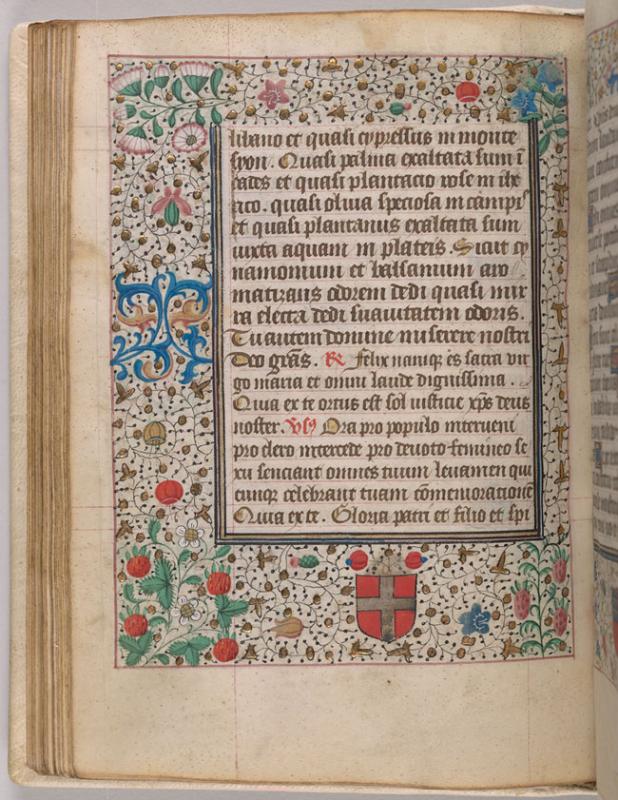 libano et quasi cypressus in monte
syon. Quasi palma exaltata sum ī
cades et quasi plantacio rose in ihe
rico. quasi oliua speciosa in campis
et quasi plantanus exaltata sum
iuxta aquam in plateis. Sicut cy
namomum et balsamum aro
matizans odorem dedi quasi mir
ra electa dedi suauitatem odoris.
Tu autem domine miserere nostri
Deo grās. R Felix namq; es sacra vir
go maria et omni laude dignissima.
Quia ex te ortus est sol iusticie xp̄s deus
noster. Vs Ora pro populo interueni
pro clero intercede pro deuoto femineo se
xu senciant omnes tuum leuamen qui
cunq; celebrant tuam cōmemoracionē
Quia ex te. Gloria patri et filio et spi